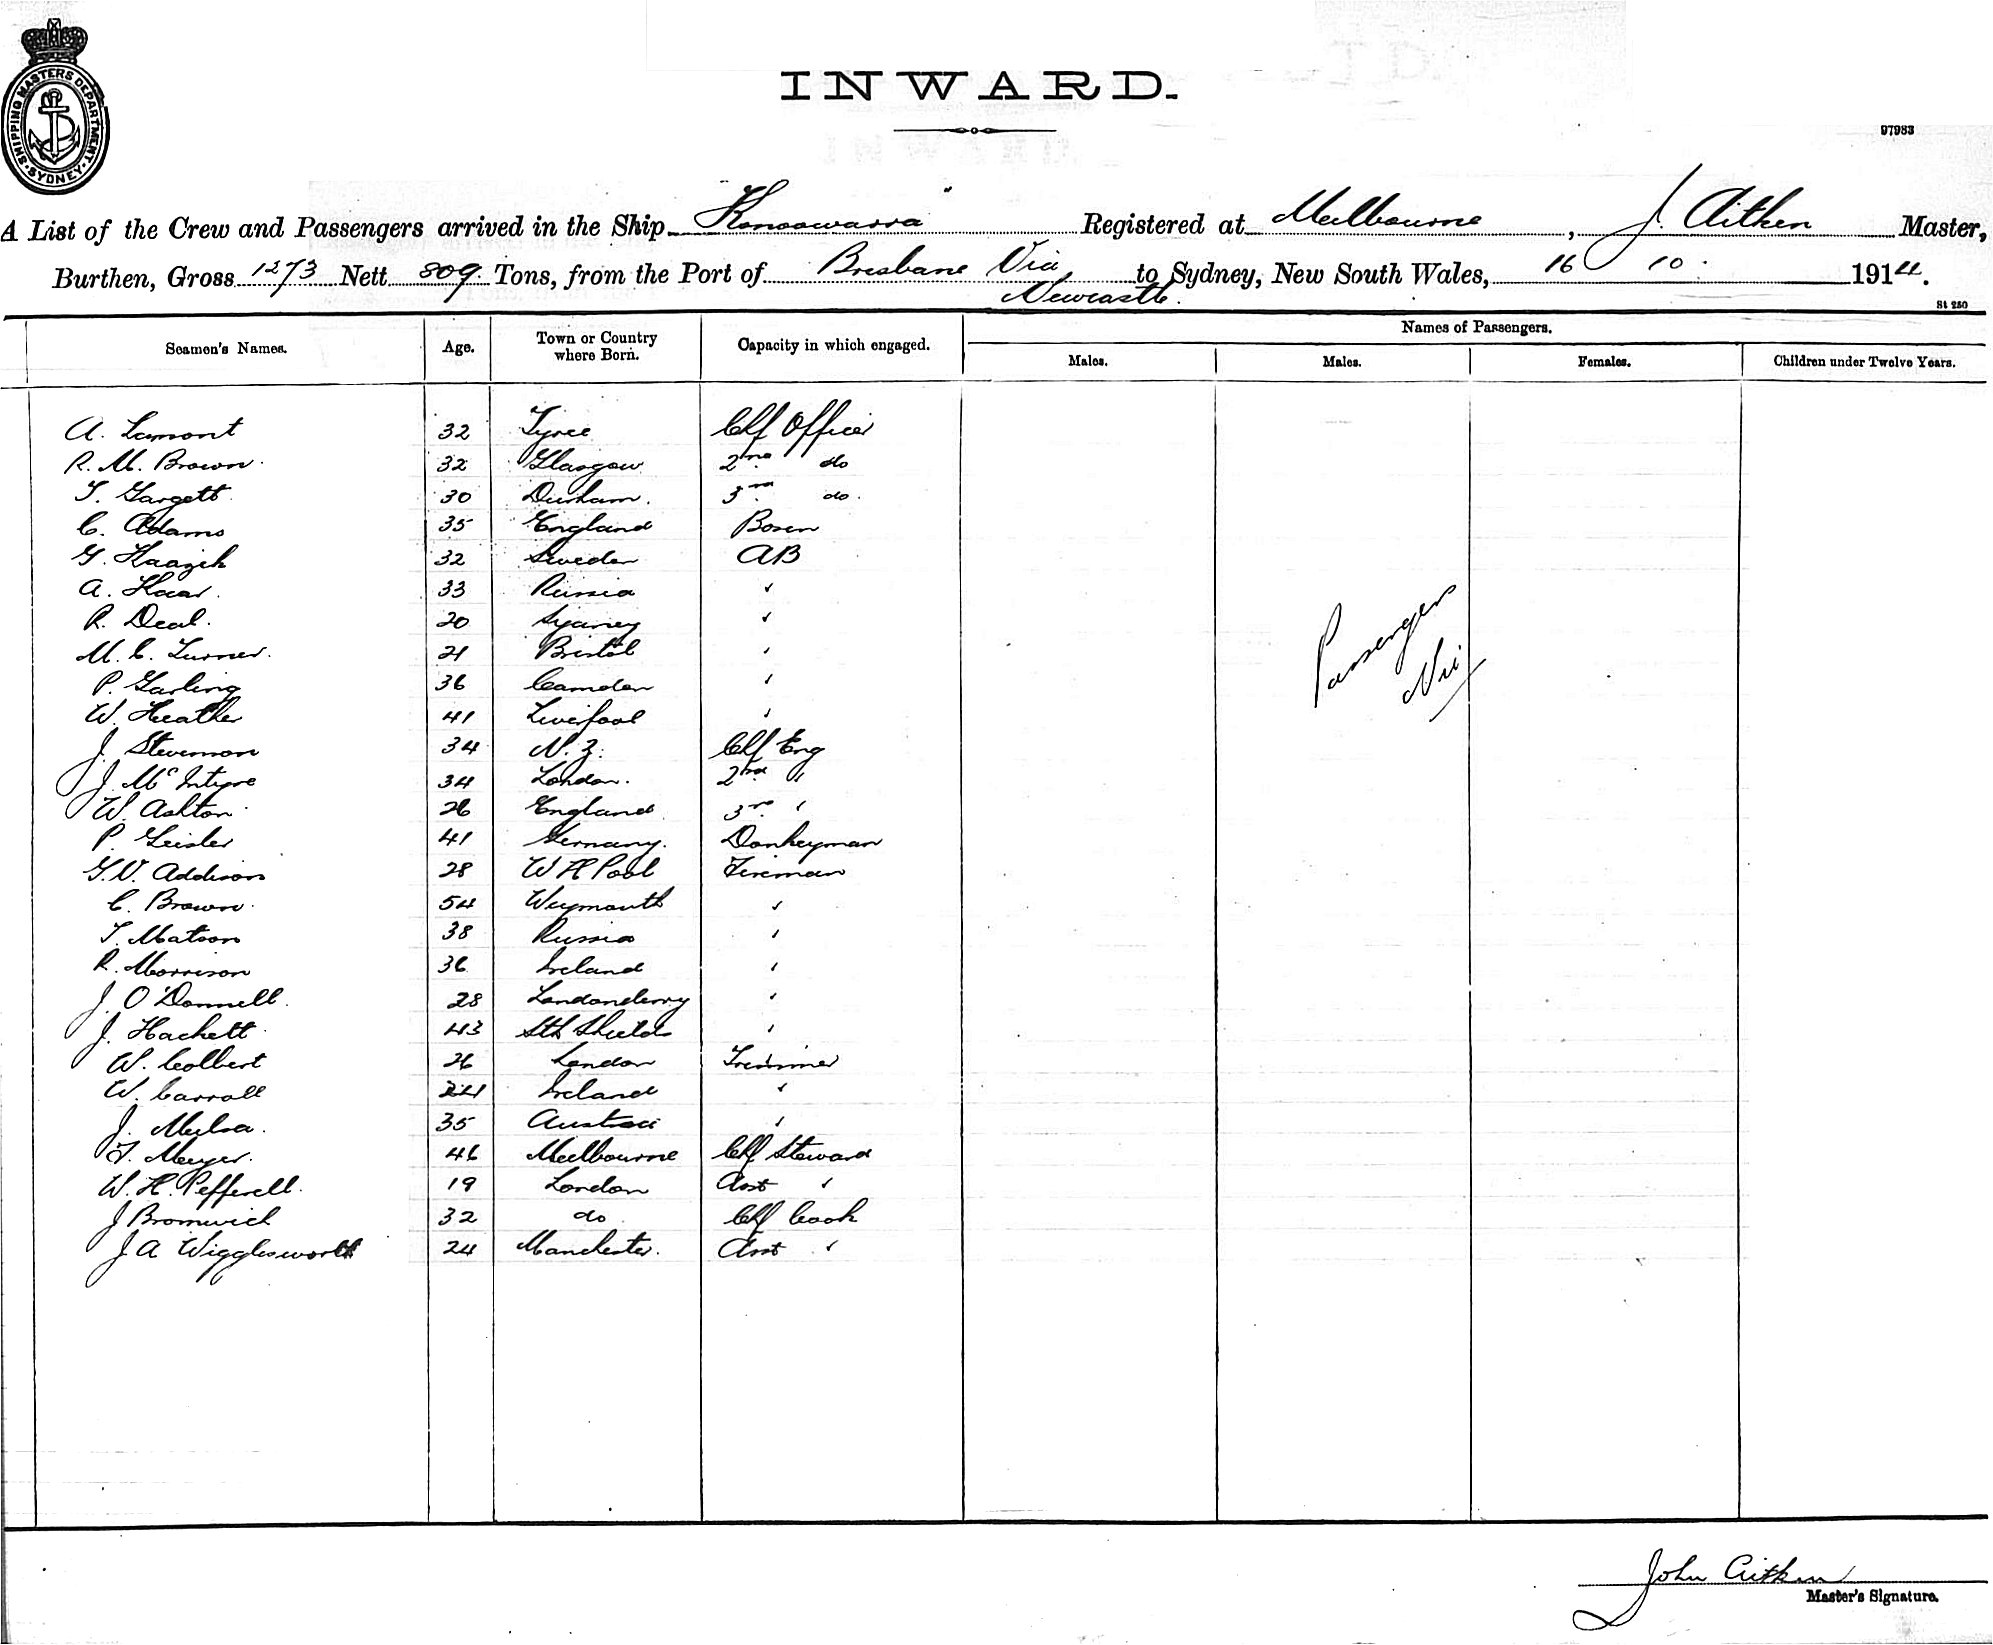 SHIPPING MASTERS DEPARTMENT
SYDNEY
INWARD.
97983
A List of the Crew and Passengers arrived in the Ship "Konoowarra" Registered at Melbourne, J. Aitken Master,
Burthen, Gross 1273 Nett 809 Tons, from the Port of Brisbane Via Newcastle. to Sydney, New South Wales, 16 10. 1914.
St 250
Seamen's Names. Age. Town or Country where Born. Capacity in which engaged. Names of Passengers.
Males. Males. Females. Children under Twelve Years.
A. Lamont 32 Tyree Chf Officer
R. M. Brown 32 Glasgow 2nd do
T. Gargett 30 Durham. 3rd do.
C. Adams 35 England Bosen
G. 32 Sweden AB
A. Haar. 33 Russia "
R. Deal. 20 Sydney "
M. C. Turner. 21 Bristol "
P. Garling 36 Camden "
W. Heather 41 Liverpool "
J. Stevenson 34 N. Z. Chf Eng
J. McIntyre 34 London. 2nd "
W. Ashton 26 England 3rd "
P. Geisler 41 Germany. Donkeyman
G. V. Addison 28 W H Pool Fireman
C. Brown. 54 Weymouth "
T. Matson 38 Russia "
R. Morrison 36 Ireland "
J. O'Donnell. 28 Londonderry "
J. Hackett 43 Sth Shields "
W. Colbert 26 London Trimmer
W. Carroll 24 Ireland "
J. 35 "
T. Meyer. 46 Melbourne Chf Steward
W. H. Pefferell. 19 London Asst "
J Bromwich 32 do Chf Cook
J A Wigglesworth 24 Manchester. Asst "
Passengers
Nil
John Aitken
Master's Signature.